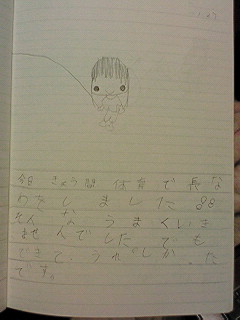 今日 きょう 体育で長な
わをしました 88
そんなうまくいき
ませんでした でも
できて、うれしかった
です。